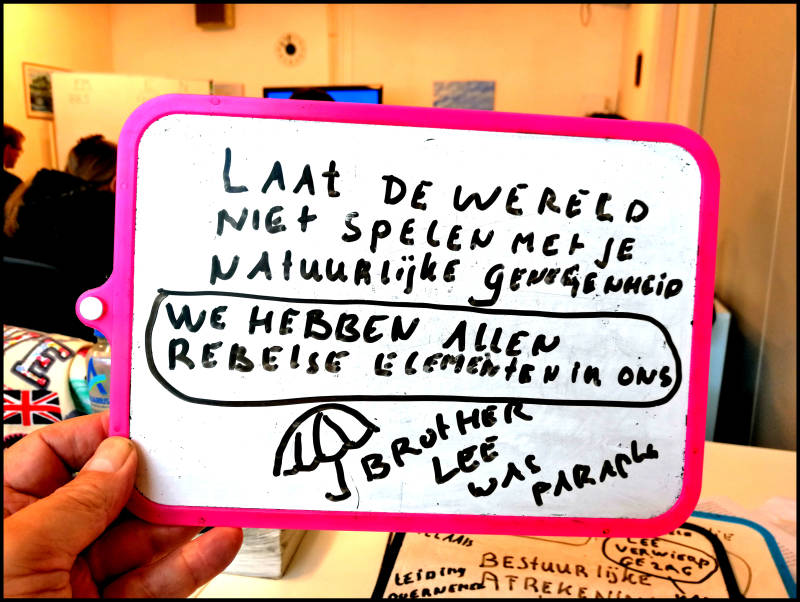 LAAt DE WERELD
NIEt SPELEN MEt JE
NAtUURLijKE GENEGENHEiD
WE HEBBEN ALLEN
REBELSE ELEMENtEN in ONS
BROtHER
LEE
WAS
PARAPLU
LEE
VERWiERP
GEZAG
BESTUURLijKE
AFREKENING
LEiDiNG